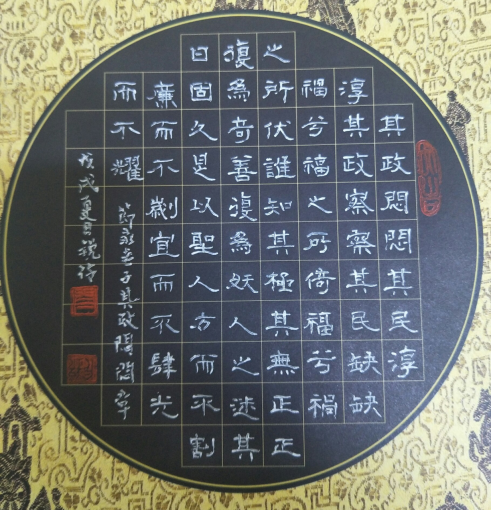 其政悶悶其民淳
淳其政察察其民缺缺
福兮福之所倚福兮禍
之所伏誰知其極其無正正
復為奇善復為妖人之迷其
日固久是以聖人方而不割
廉而不劌宜而不肆光
而不耀 節录老子其政悶悶章
戊戌夏